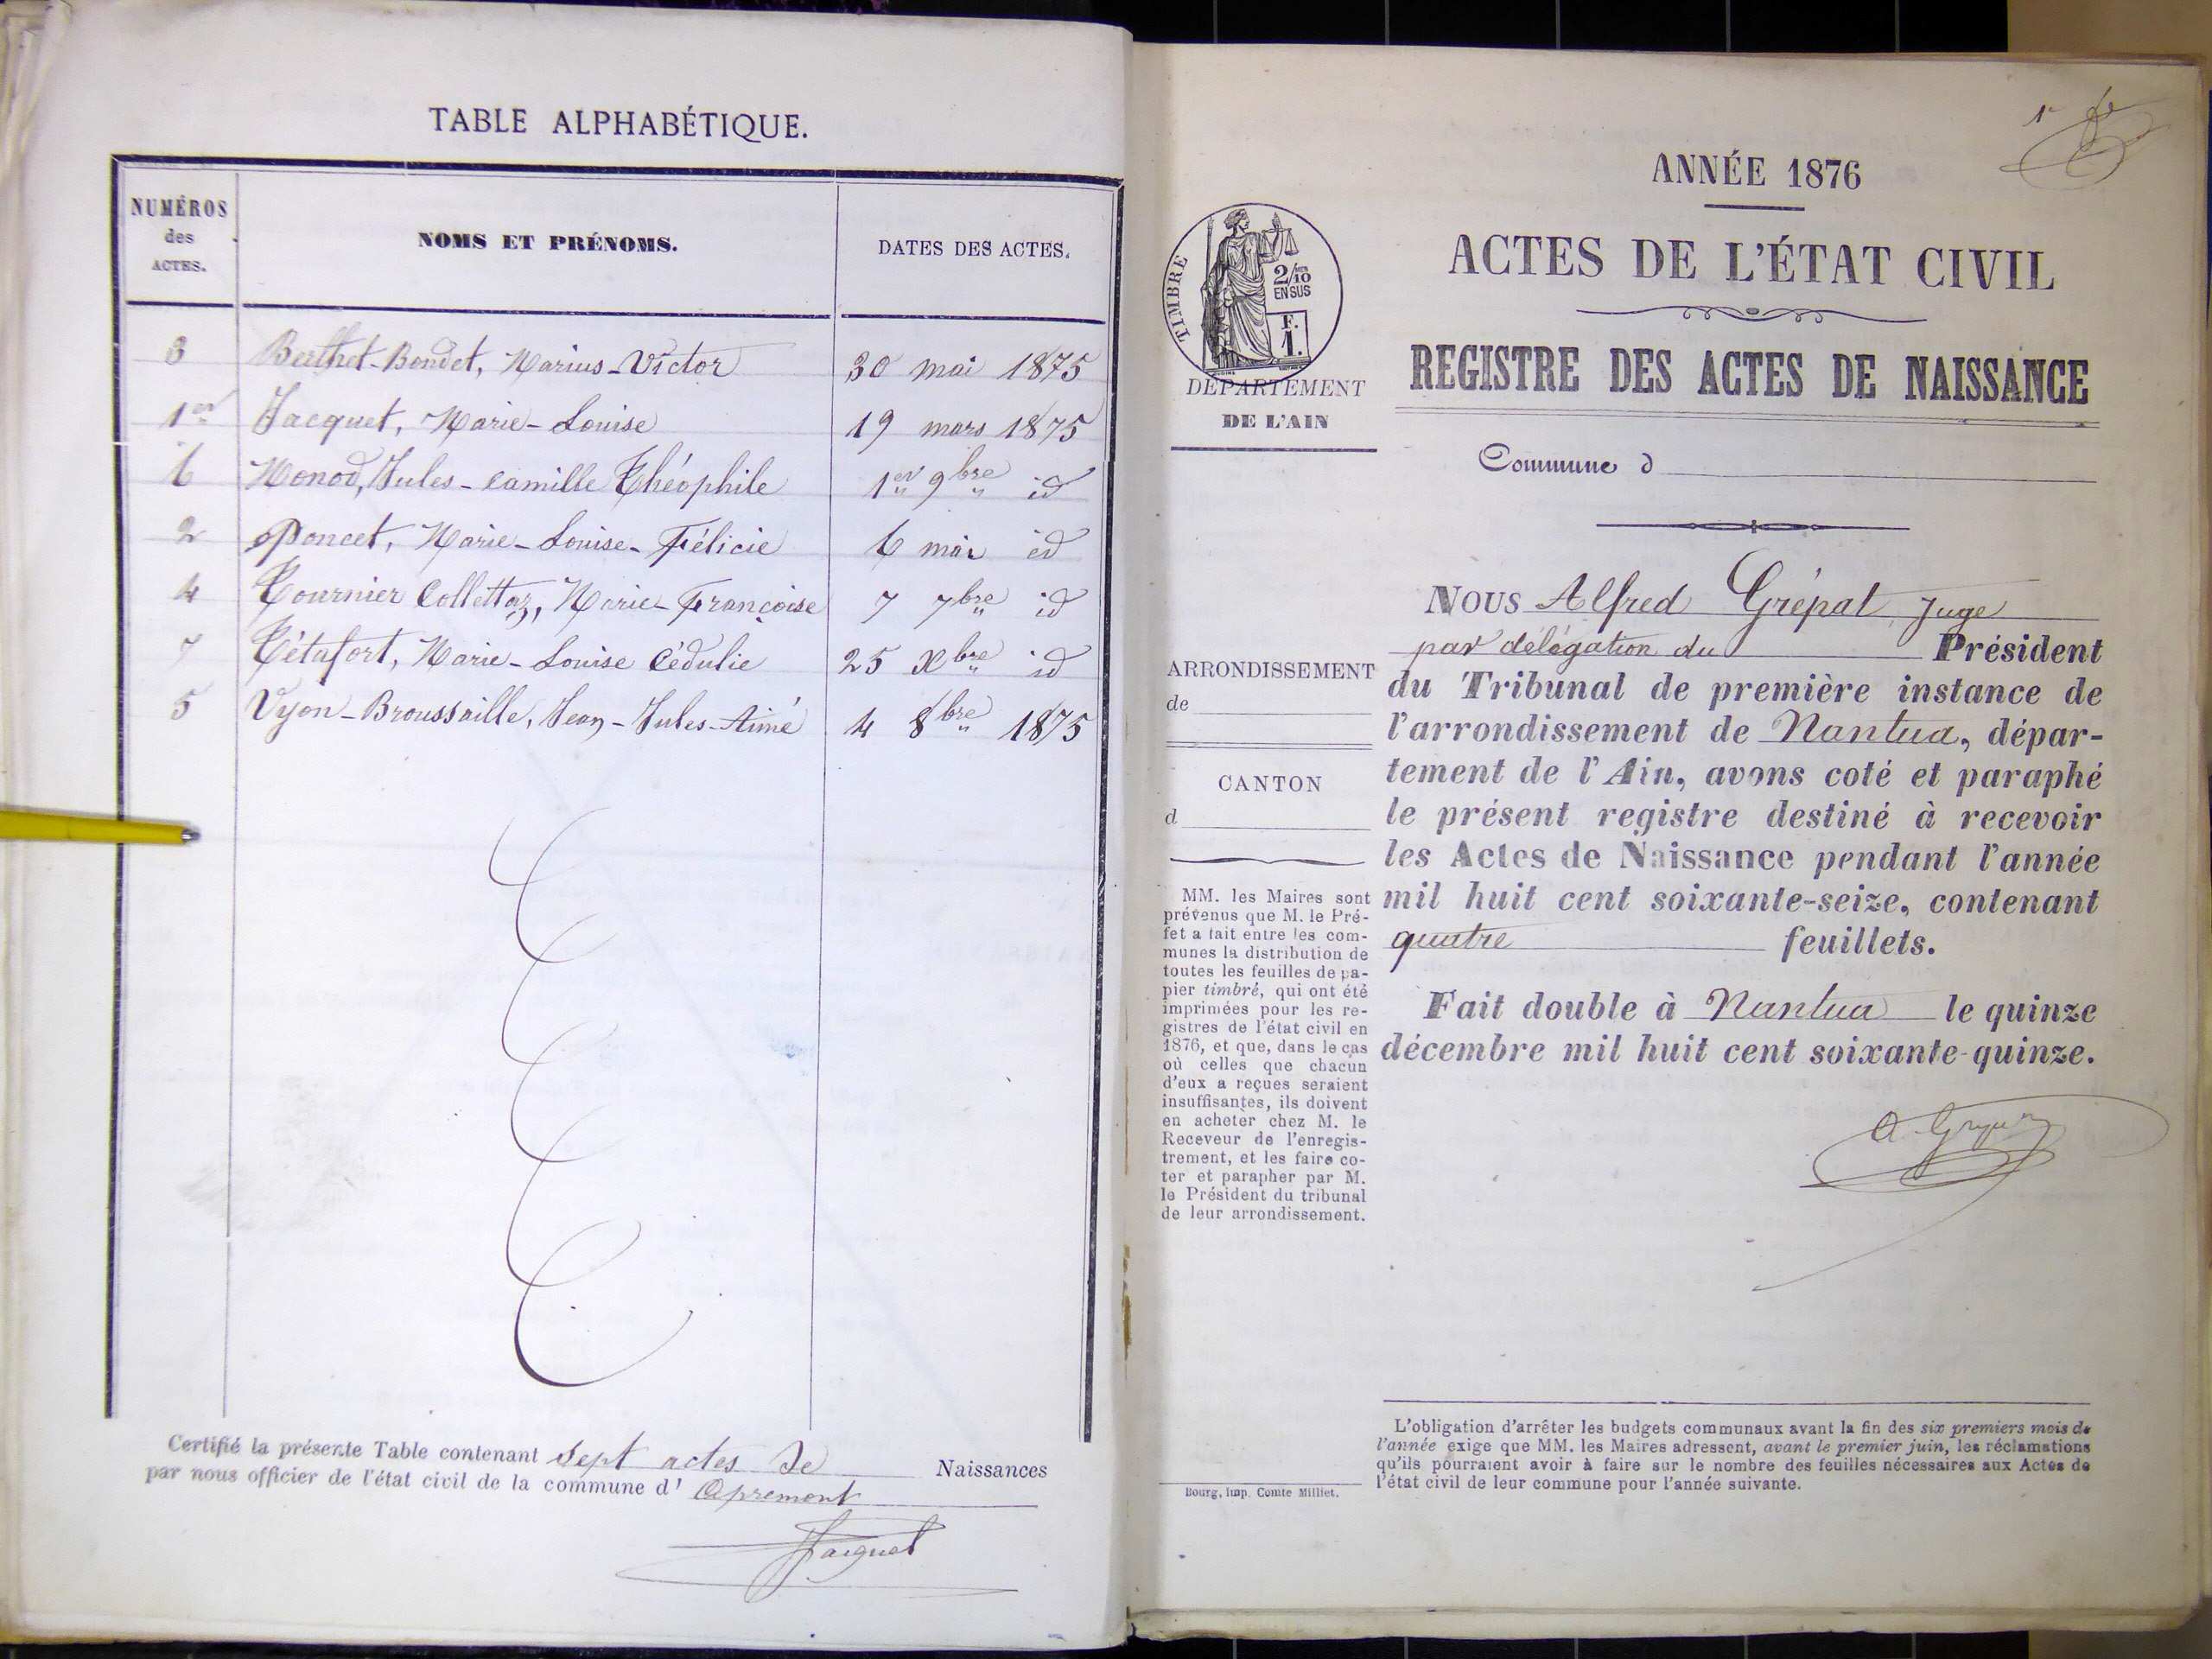 TABLE ALPHABÉTIQUE.
NUMÉROS des ACTES. NOMS ET PRÉNOMS. DATES DES ACTES.
3 Berthet-Bondet, Marius-Victor 30 mai 1875
1er Jacquet, Marie-Louise 19 mars 1875
6 Monod, Jules-Camille Théophile 1er 9bre id
2 Poncet, Marie-Louise-Félicie 6 mai id
4 Tournier Collettaz, Marie-Françoise 7 7bre id
7 Tétafort, Marie-Louise Cédulie 25 Xbre id
5 Vyon-Broussaille, Jean-Jules-Aimé 4 8bre 1875
Certifié la présente Table contenant Sept actes de Naissances
par nous officier de l'état civil de la commune d' Apremont
Jacquet
1r
ANNÉE 1876
ACTES DE L'ÉTAT CIVIL
REGISTRE DES ACTES DE NAISSANCE
TIMBRE
2/10 EN SUS
F. 1.
DÉPARTEMENT
DE L'AIN
Commune d
ARRONDISSEMENT
de
CANTON
d
MM. les Maires sont
prévenus que M. le Pré-
fet a fait entre les com-
munes la distribution de
toutes les feuilles de pa-
pier timbré, qui ont été
imprimées pour les re-
gistres de l'état civil en
1876, et que, dans le cas
où celles que chacun
d'eux a reçues seraient
insuffisantes, ils doivent
en acheter chez M. le
Receveur de l'enregis-
trement, et les faire co-
ter et parapher par M.
le Président du tribunal
de leur arrondissement.
NOUS Alfred Grépat, Juge
par délégation du Président
du Tribunal de première instance de
l'arrondissement de Nantua, dépar-
tement de l'Ain, avons coté et paraphé
le présent registre destiné à recevoir
les Actes de Naissance pendant l'année
mil huit cent soixante-seize, contenant
quatre feuillets.
Fait double à Nantua le quinze
décembre mil huit cent soixante-quinze.
L'obligation d'arrêter les budgets communaux avant la fin des six premiers mois de
l'année exige que MM. les Maires adressent, avant le premier juin, les réclamations
qu'ils pourraient avoir à faire sur le nombre des feuilles nécessaires aux Actes de
l'état civil de leur commune pour l'année suivante.
Bourg, Imp. Comte Milliet.